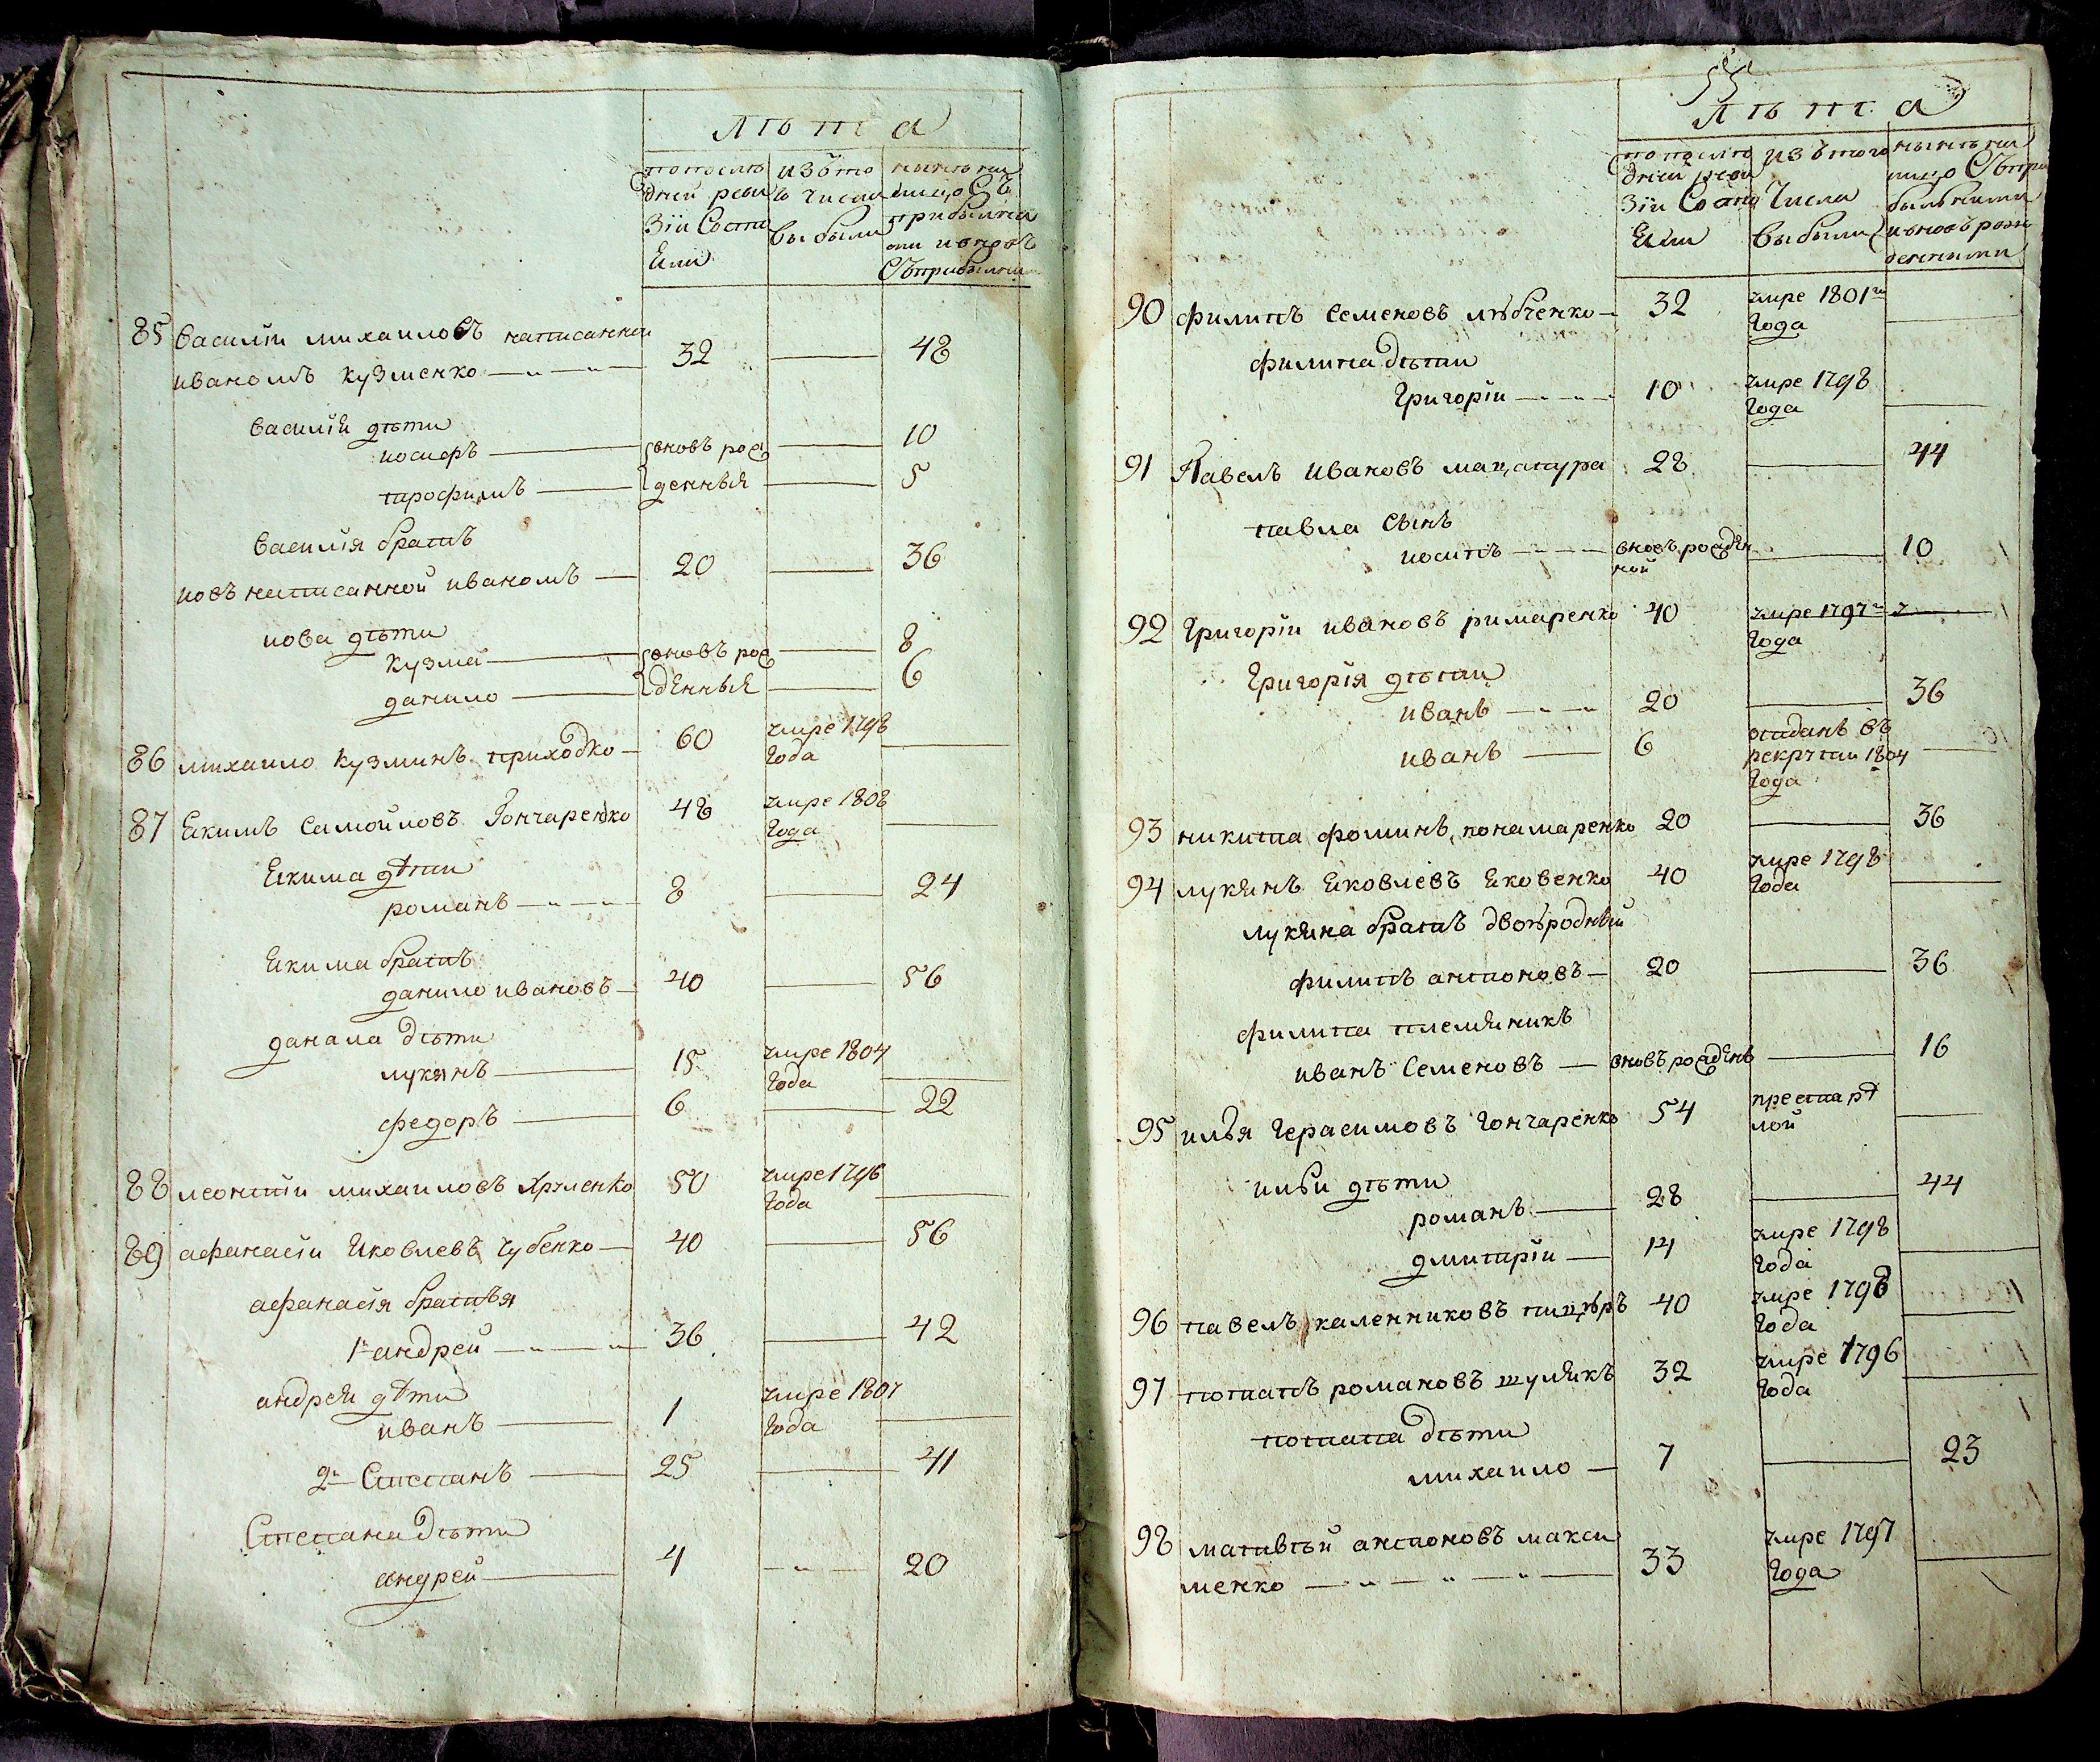 лѣта
попослѣ изъто нынѣ на
дней реви ъ числа лицо Съ
зіи Состо выбыли прибылы
яли ми ивновъ
Съприбылы
85 василіи михаиловъ написанной
иваномъ кузменко 32 48
василія дѣти
иосифъ вновъ рож 10
трофимъ денныя 5
василія братъ
иовъ написанной иваномъ 20 36
иова дѣти
кузма вновъ рож 8
данило денныя 6
86 михаило кузминъ приходко 60 умре 1798
года
87 якимъ самойловъ гончаренко 48 умре 1808
года
якима дѣти
романъ 8 24
якима братъ
данило ивановъ 40 56
данила дѣти
лукянъ 15 умре 1804
года
федоръ 6 22
88 леонтіи михаиловъ хруленко 50 умре 1796
года
89 афанасіи яковлевъ чубенко 40 56
афанасія братья
1й андрей 36 42
андрея дѣти
иванъ 1 умре 1807
года
2й Степанъ 25 41
Степана дѣти
андрей 4 20
55
лѣта
попослѣ изътого нынѣ на
дней реви числа лицо Съпри
зіи Состо выбыли былыми
яли ивновъ рож
денними
90 филипъ семеновъ лѣбченко 32 умре 1801го
года
филипа дѣти
григоріи 10 умре 1798
года
91 Павелъ ивановъ мацапура 28 44
павла сынъ
иосипъ вновъ рожден 10
ной
92 григоріи ивановъ римаренко 40 умре 1797го
года
григорія дѣти
иванъ 20 36
иванъ 6 отданъ въ
рекруты 1804
года
93 никита фоминъ понамаренко 20 36
94 лукянъ яковлевъ яковенко 40 умре 1798
года
лукяна братъ двоюродный
филипъ антоновъ 20 36
филипа племяникъ
иванъ семеновъ вновъ рожденъ 16
95 илья герасимовъ гончаренко 54 престарѣ
лой
ильи дѣти
романъ 28 44
дмитріи 14 умре 1798
года
96 павелъ каленниковъ 40 умре 1798
года
97 потапъ романовъ шулякъ 32 умре 1796
года
потапа дѣти
михаило 7 23
98 матвѣй антоновъ макси
менко 33 умре 1797
года